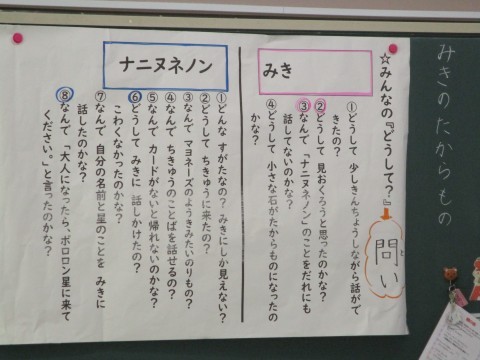 みきのたからもの
☆みんなの『どうして?』
問い
と
みき
①どうして 少しきんちょうしながら話がで
きたの?
②どうして 見おくろうと思ったのかな?
③なんで 「ナニヌネノン」のことをだれにも
話してないのかな?
④どうして 小さな石がたからものになったの
かな?
ナニヌネノン
①どんな すがたなの? みきにしか見えない?
②どうして ちきゅうに来たの?
③なんで マヨネーズのようきみたいなのりもの?
④なんで ちきゅうのことばを話せるの?
⑤なんで カードがないと帰れないのかな?
⑥どうして みきに 話しかけたの?
こわくなかったのかな?
⑦なんで 自分の名前と星のことを みきに
話したのかな?
⑧なんで 「大人になったら、ポロロン星に来て
ください。」と言ったのかな?